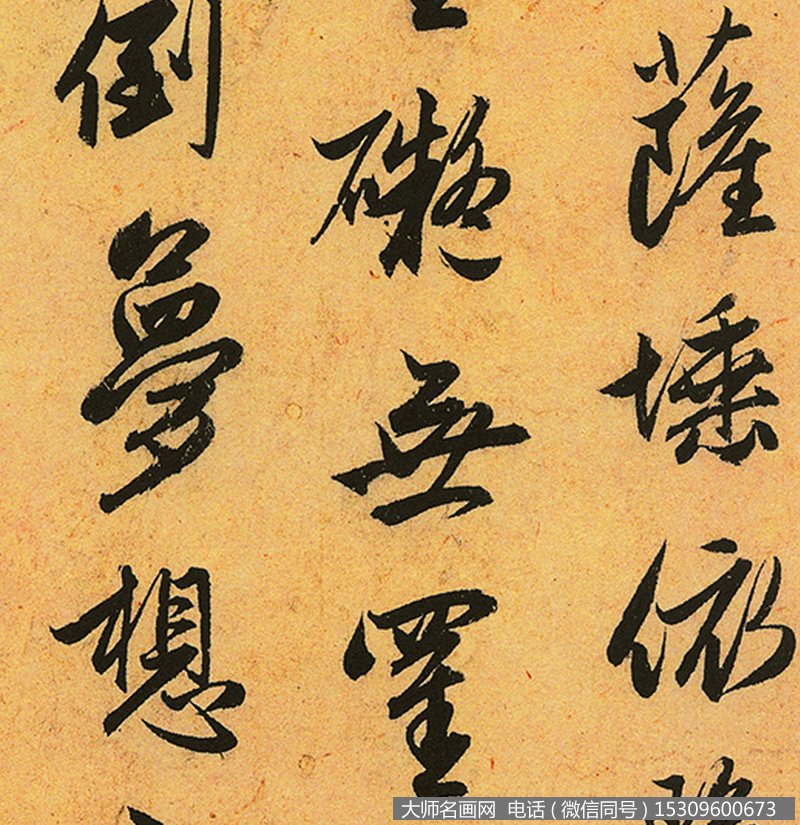 薩埵依
礙無罣
倒夢想
大师名画网 电话（微信同号）15309600673